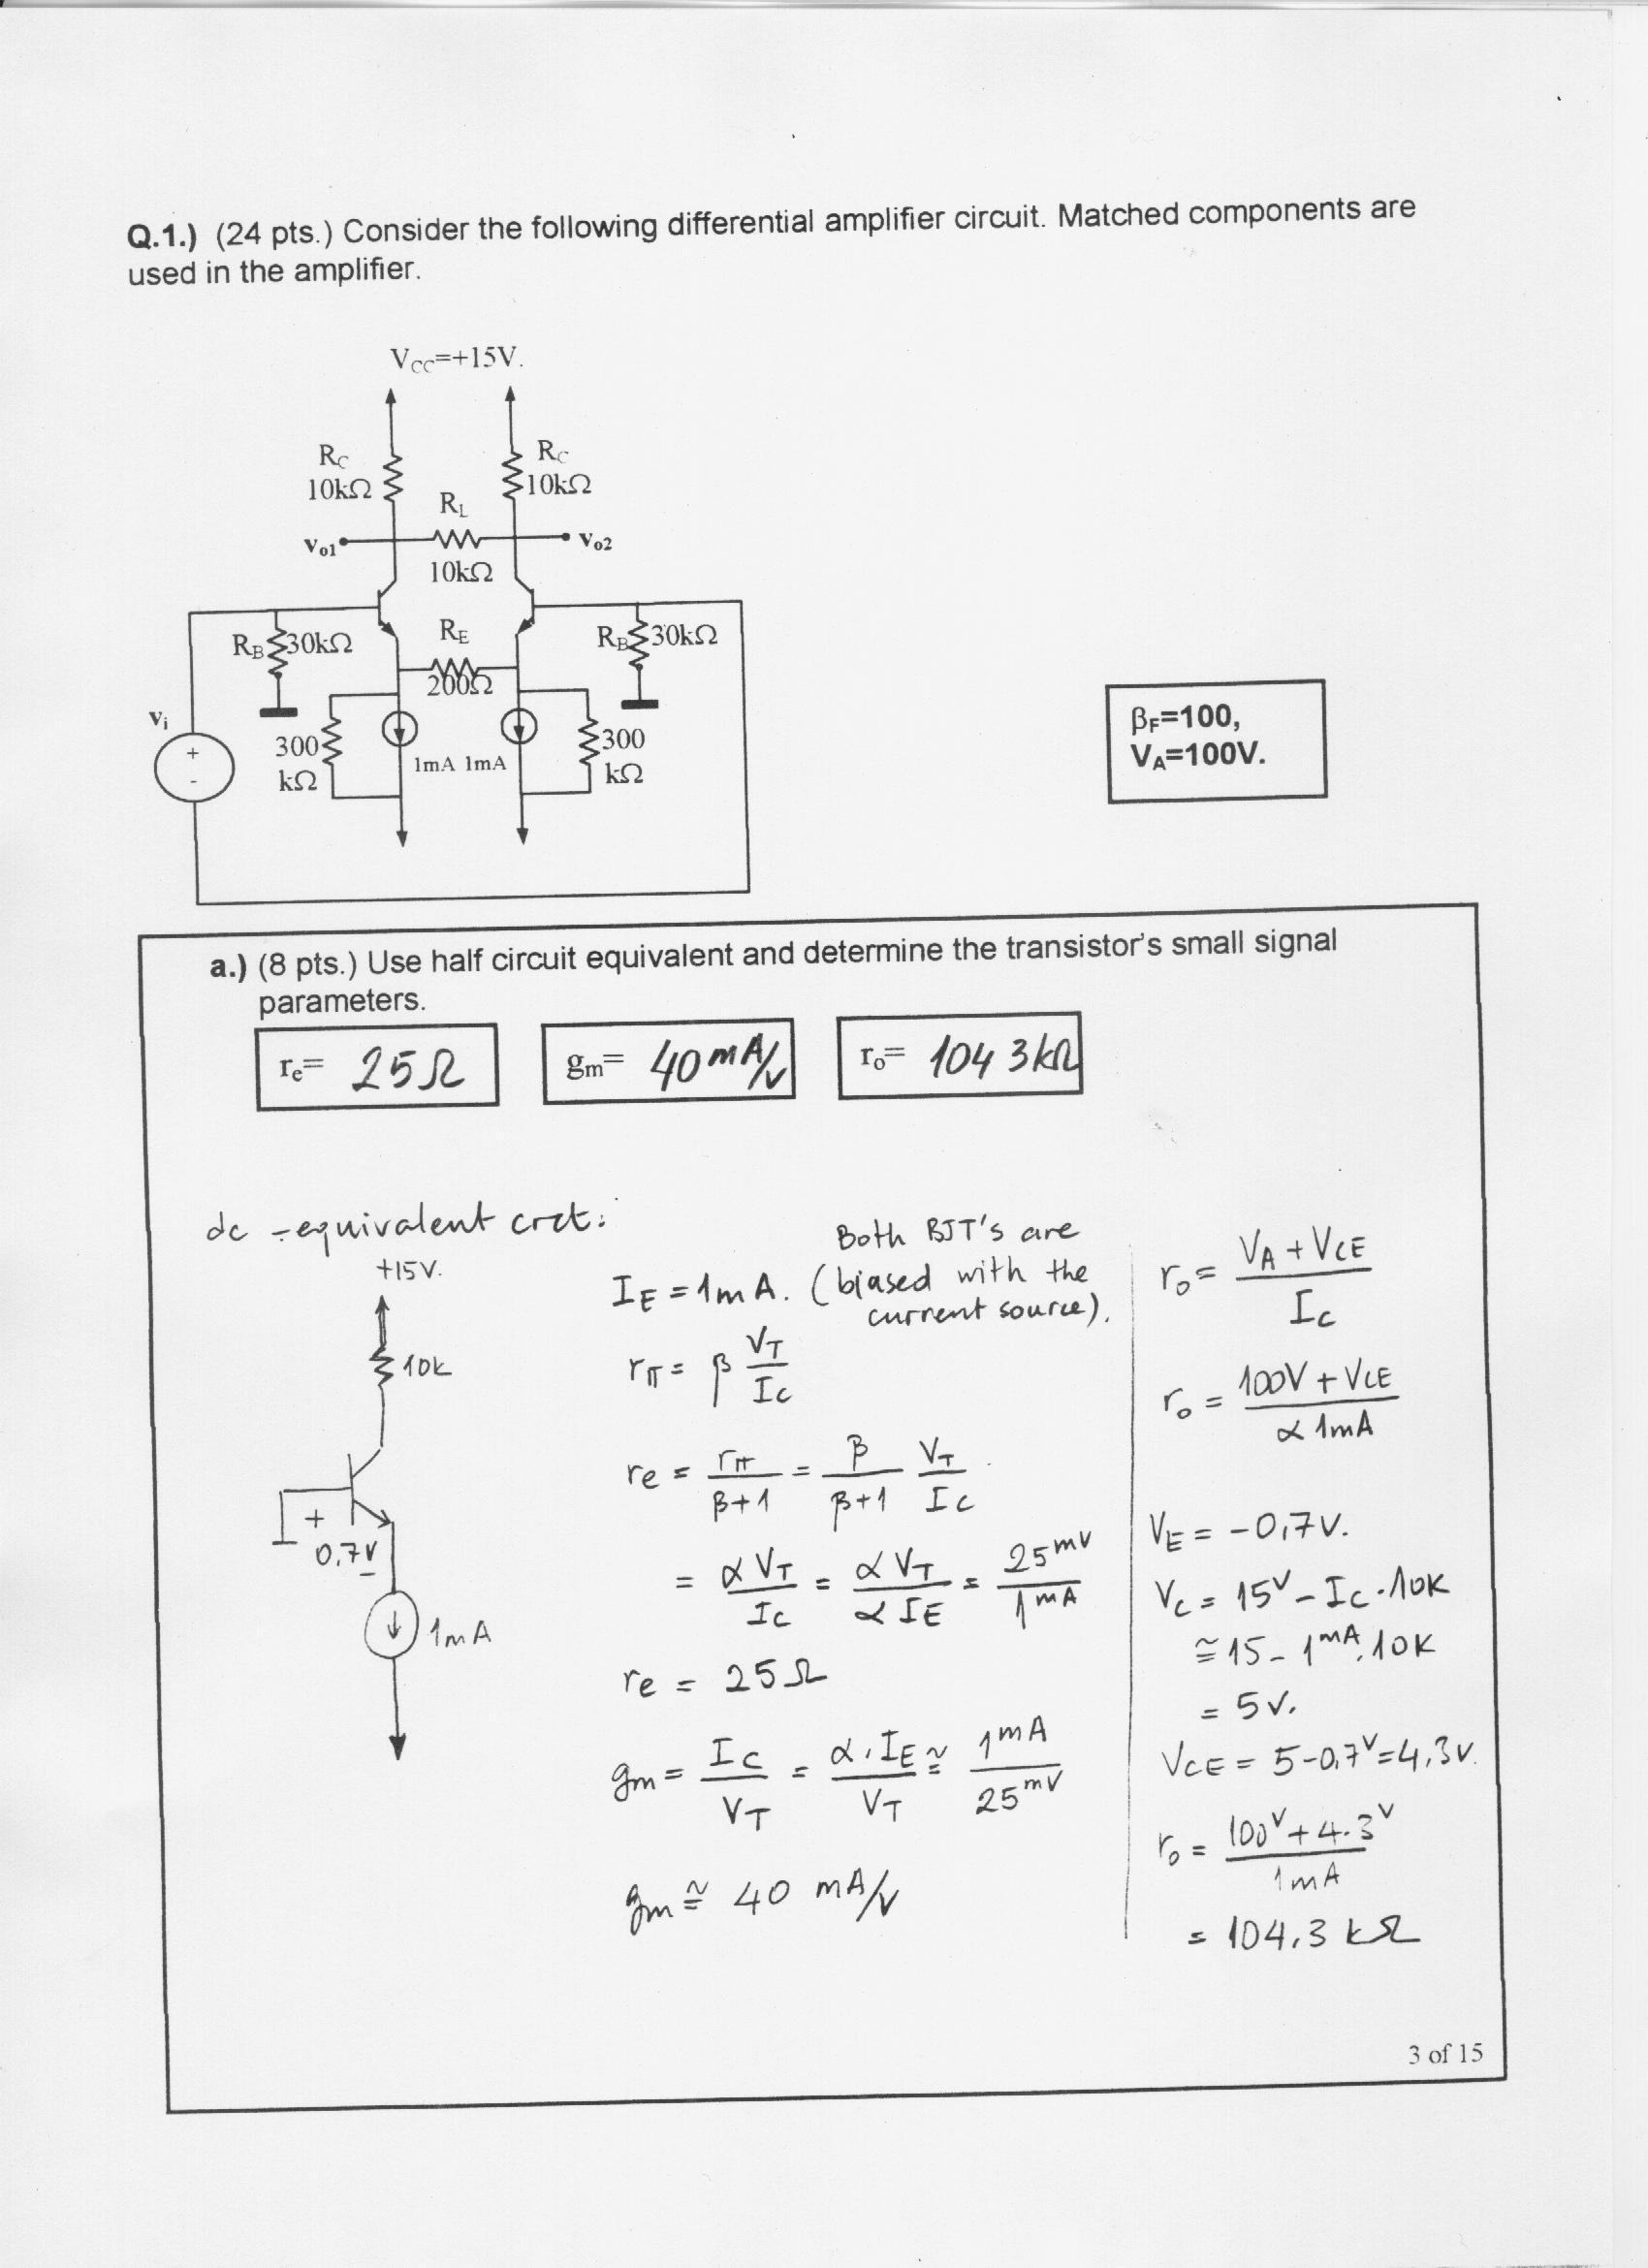 Q.1.) (24 pts.) Consider the following differential amplifier circuit. Matched components are
used in the amplifier.
V_CC=+15V.
R_C
10kΩ
R_C
10kΩ
R_L
10kΩ
v_o1
v_o2
R_B 30kΩ
R_E
200Ω
R_B 30kΩ
v_i
+
-
300
kΩ
1mA 1mA
300
kΩ
β_F=100,
V_A=100V.
a.) (8 pts.) Use half circuit equivalent and determine the transistor's small signal
parameters.
r_e= 25Ω
g_m= 40 mA/V
r_o= 104 3kΩ
dc -equivalent crct:
+15V.
10k
+
0,7V
-
1mA
Both BJT's are
I_E = 1mA. (biased with the
current source).
r_π = β V_T / I_C
r_e = r_π / (β+1) = β / (β+1) V_T / I_C
= α V_T / I_C = α V_T / α I_E = 25 mV / 1 mA
r_e = 25Ω
g_m = I_C / V_T = α . I_E / V_T ≅ 1mA / 25 mV
g_m ≅ 40 mA/V
r_o = V_A + V_CE / I_C
r_o = 100V + V_CE / α 1mA
V_E = -0,7V.
V_C = 15V - I_C . 10K
≅ 15 - 1mA . 10K
= 5V.
V_CE = 5-0,7V = 4,3V.
r_o = 100V + 4.3V / 1mA
= 104,3 kΩ
3 of 15